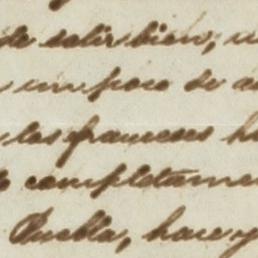 de salir bien; u
un poco de a
los franceses h
completame
Puebla, hace y